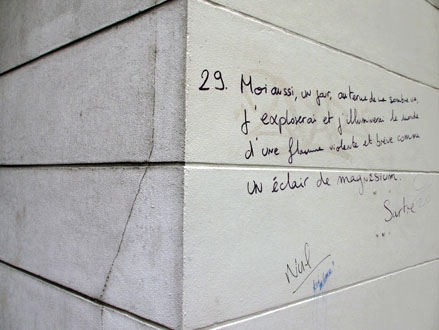 29. Moi aussi, un jour, au terme de ma sombre vie,
j'exploserai et j'illuminerai le monde
d'une flamme violente et brève comme
un éclair de magnésium.
Sartre
Nul